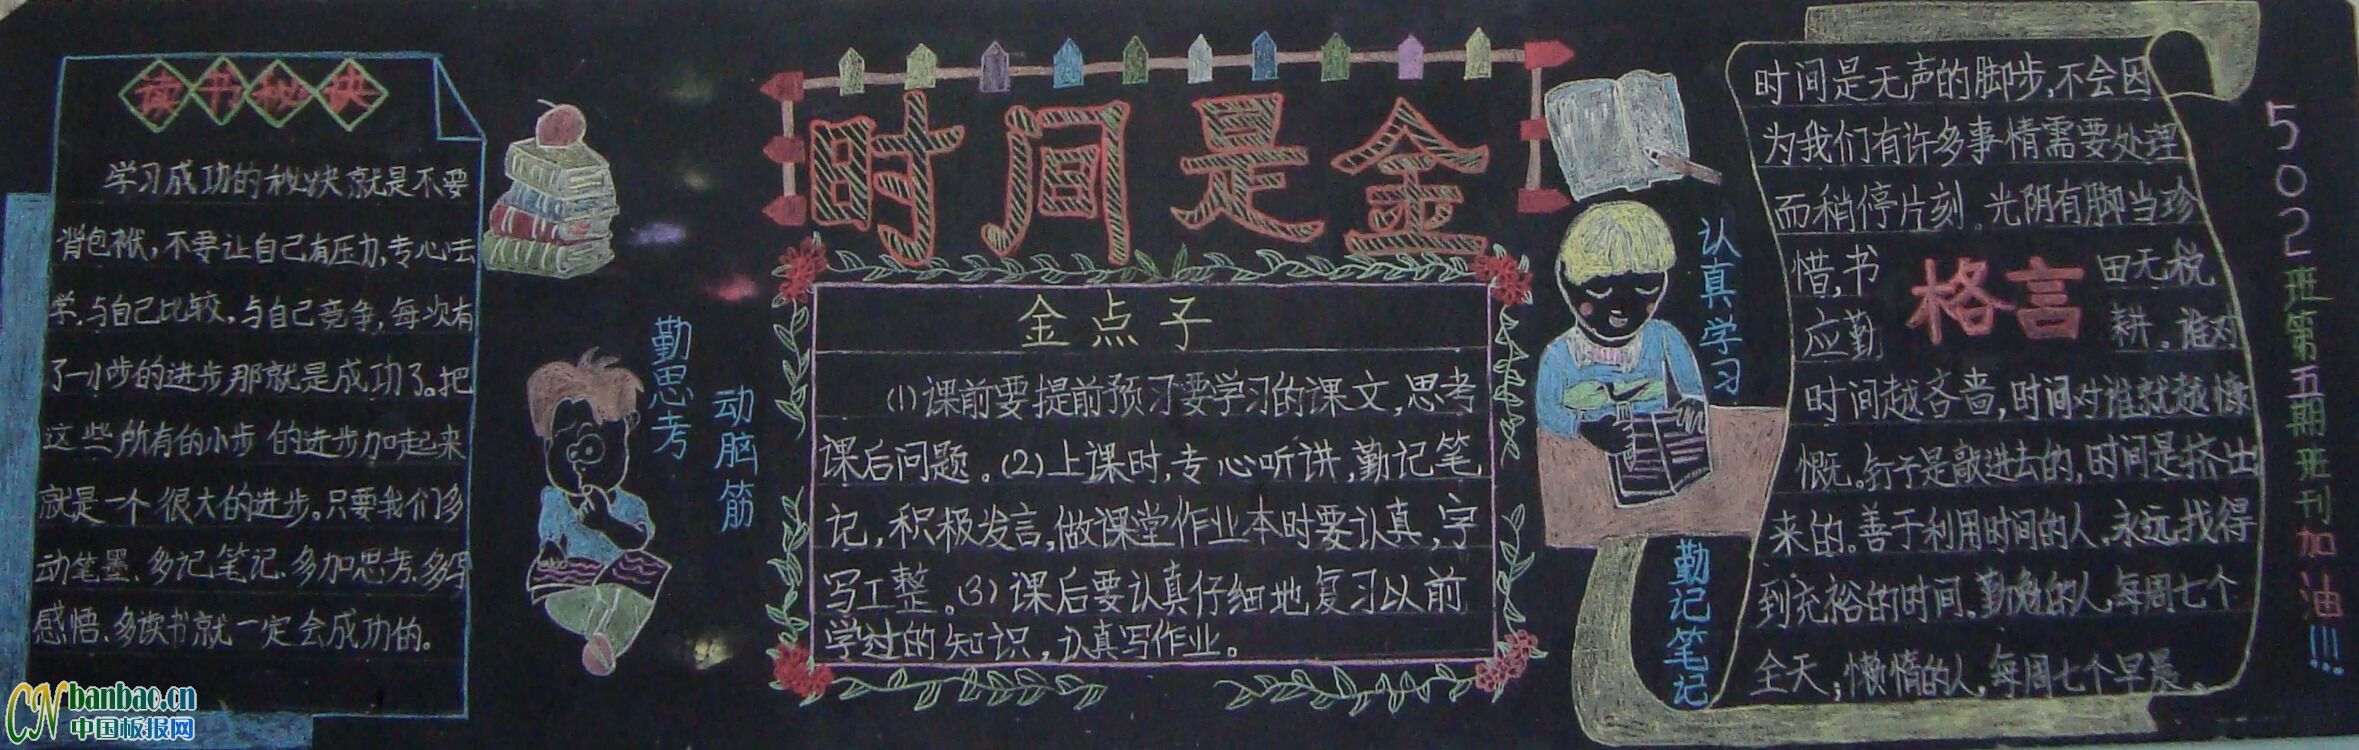 读书秘诀
学习成功的秘诀就是不要
背包袱,不要让自己有压力,专心去
学,与自己比较,与自己竞争,每次有
了一小步的进步那就是成功了。把
这些所有的小步的进步加起来
就是一个很大的进步。只要我们多
动笔墨、多记笔记、多加思考、多写
感悟、多读书就一定会成功的。
勤思考
动脑筋
时间是金
金点子
(1)课前要提前预习要学习的课文,思考
课后问题。(2)上课时,专心听讲,勤记笔
记,积极发言,做课堂作业本时要认真,字
写工整。(3)课后要认真仔细地复习以前
学过的知识,认真写作业。
认真学习
勤记笔记
时间是无声的脚步,不会因
为我们有许多事情需要处理
而稍停片刻。光阴有脚当珍
惜,书 田无税
应勤 耕。谁对
格言
时间越吝啬,时间对谁就越慷
慨。钉子是敲进去的,时间是挤出
来的。善于利用时间的人,永远找得
到充裕的时间。勤勉的人,每周七个
全天;懒惰的人,每周七个早晨。
502班第五期班刊加油!!!
CN banbao.cn
中国板报网